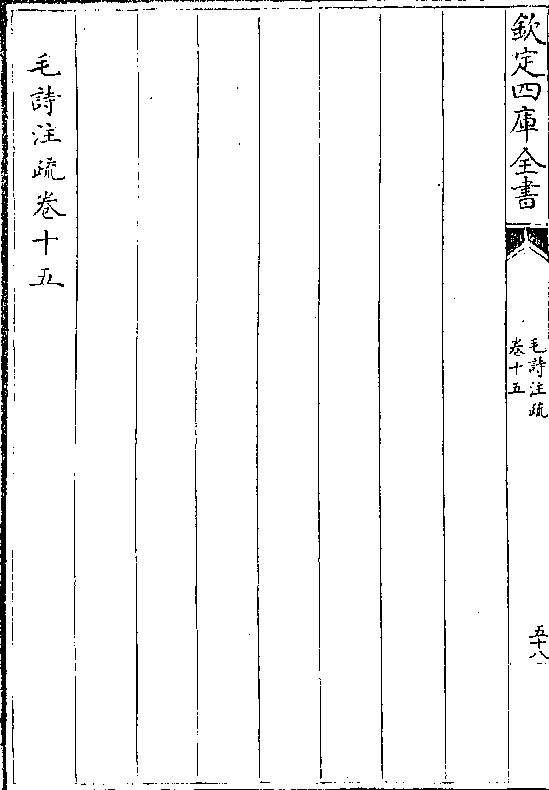 欽定四庫全書
毛詩注疏
卷十五
五十八
毛詩注疏卷十五